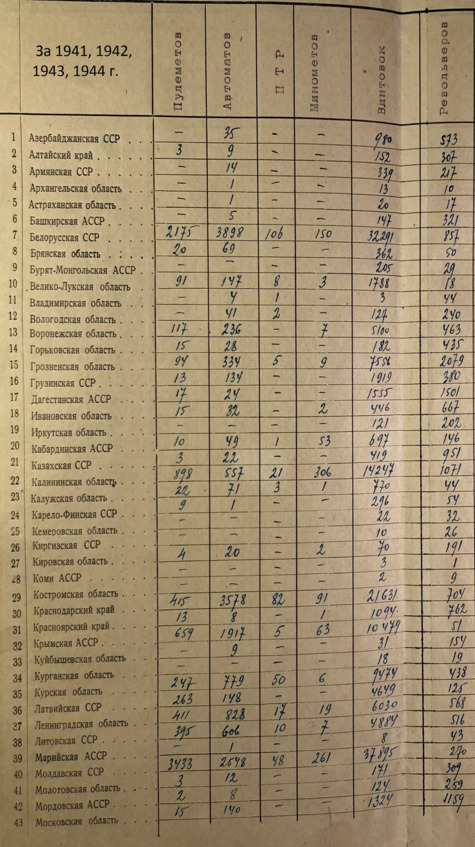 За 1941, 1942,
1943, 1944 г.
Пулеметов
Автоматов
ПТР
Минометов
Винтовок
Револьверов
1 Азербайджанская ССР — 35 — — 980 573
2 Алтайский край 3 9 — — 152 307
3 Армянская ССР — 14 — — 339 217
4 Архангельская область — 1 — — 13 10
5 Астраханская область — 1 — — 20 17
6 Башкирская АССР — 5 — — 147 321
7 Белорусская ССР 2175 3898 106 150 32291 857
8 Брянская область 20 69 — — 362 50
9 Бурят-Монгольская АССР — — — — 205 29
10 Велико-Лукская область 91 147 8 3 1788 18
11 Владимирская область — 4 1 — 3 44
12 Вологодская область — 41 2 — 127 240
13 Воронежская область 117 236 — 7 5100 463
14 Горьковская область 15 28 — — 182 435
15 Грозненская область 94 334 5 9 7556 2079
16 Грузинская ССР 13 134 — — 1919 380
17 Дагестанская АССР 17 24 — — 1555 1501
18 Ивановская область 15 82 — 2 446 667
19 Иркутская область — — — — 121 202
20 Кабардинская АССР 10 49 1 53 697 146
21 Казахская ССР 3 22 — — 419 951
22 Калининская область 898 557 21 306 14247 1071
23 Калужская область 22 71 3 1 770 44
24 Карело-Финская ССР 9 1 — — 296 54
25 Кемеровская область — — — — 22 32
26 Киргизская ССР — — — — 10 26
27 Кировская область 4 20 — 2 70 191
28 Коми АССР — — — — 3 1
29 Костромская область — — — — 2 9
30 Краснодарский край 415 3578 82 91 21631 704
31 Красноярский край 13 8 — 1 1094 762
32 Крымская АССР 659 1917 5 63 10479 51
33 Куйбышевская область — 9 — — 31 154
34 Курганская область — — — — 18 19
35 Курская область 247 779 50 6 9474 438
36 Латвийская ССР 263 148 — — 4649 125
37 Ленинградская область 411 828 17 19 6030 568
38 Литовская ССР 395 606 10 7 4884 516
39 Марийская АССР — 1 — — 8 43
40 Молдавская ССР 3433 2548 48 261 37895 270
41 Молотовская область 3 12 — — 171 309
42 Мордовская АССР 2 8 — — 124 259
43 Московская область 15 140 — — 1324 1159